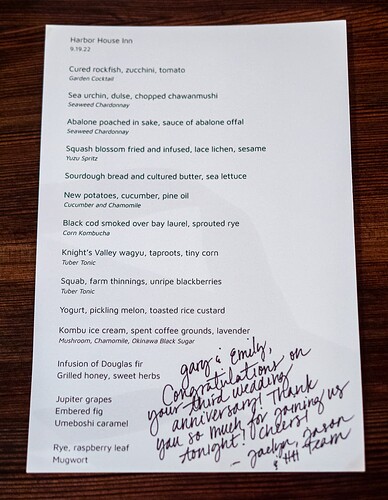 Harbor House Inn
9.19.22
Cured rockfish, zucchini, tomato
Garden Cocktail
Sea urchin, dulse, chopped chawanmushi
Seaweed Chardonnay
Abalone poached in sake, sauce of abalone offal
Seaweed Chardonnay
Squash blossom fried and infused, lace lichen, sesame
Yuzu Spritz
Sourdough bread and cultured butter, sea lettuce
New potatoes, cucumber, pine oil
Cucumber and Chamomile
Black cod smoked over bay laurel, sprouted rye
Corn Kombucha
Knight's Valley wagyu, taproots, tiny corn
Tuber Tonic
Squab, farm thinnings, unripe blackberries
Tuber Tonic
Yogurt, pickling melon, toasted rice custard
Kombu ice cream, spent coffee grounds, lavender
Mushroom, Chamomile, Okinawa Black Sugar
Infusion of Douglas fir
Grilled honey, sweet herbs
Jupiter grapes
Embered fig
Umeboshi caramel
Rye, raspberry leaf
Mugwort
Gary & Emily,
Congratulations on
your third wedding
anniversary! Thank
you so much for joining us
tonight! Cheers!
- Jaelyn, Jason
& HH team